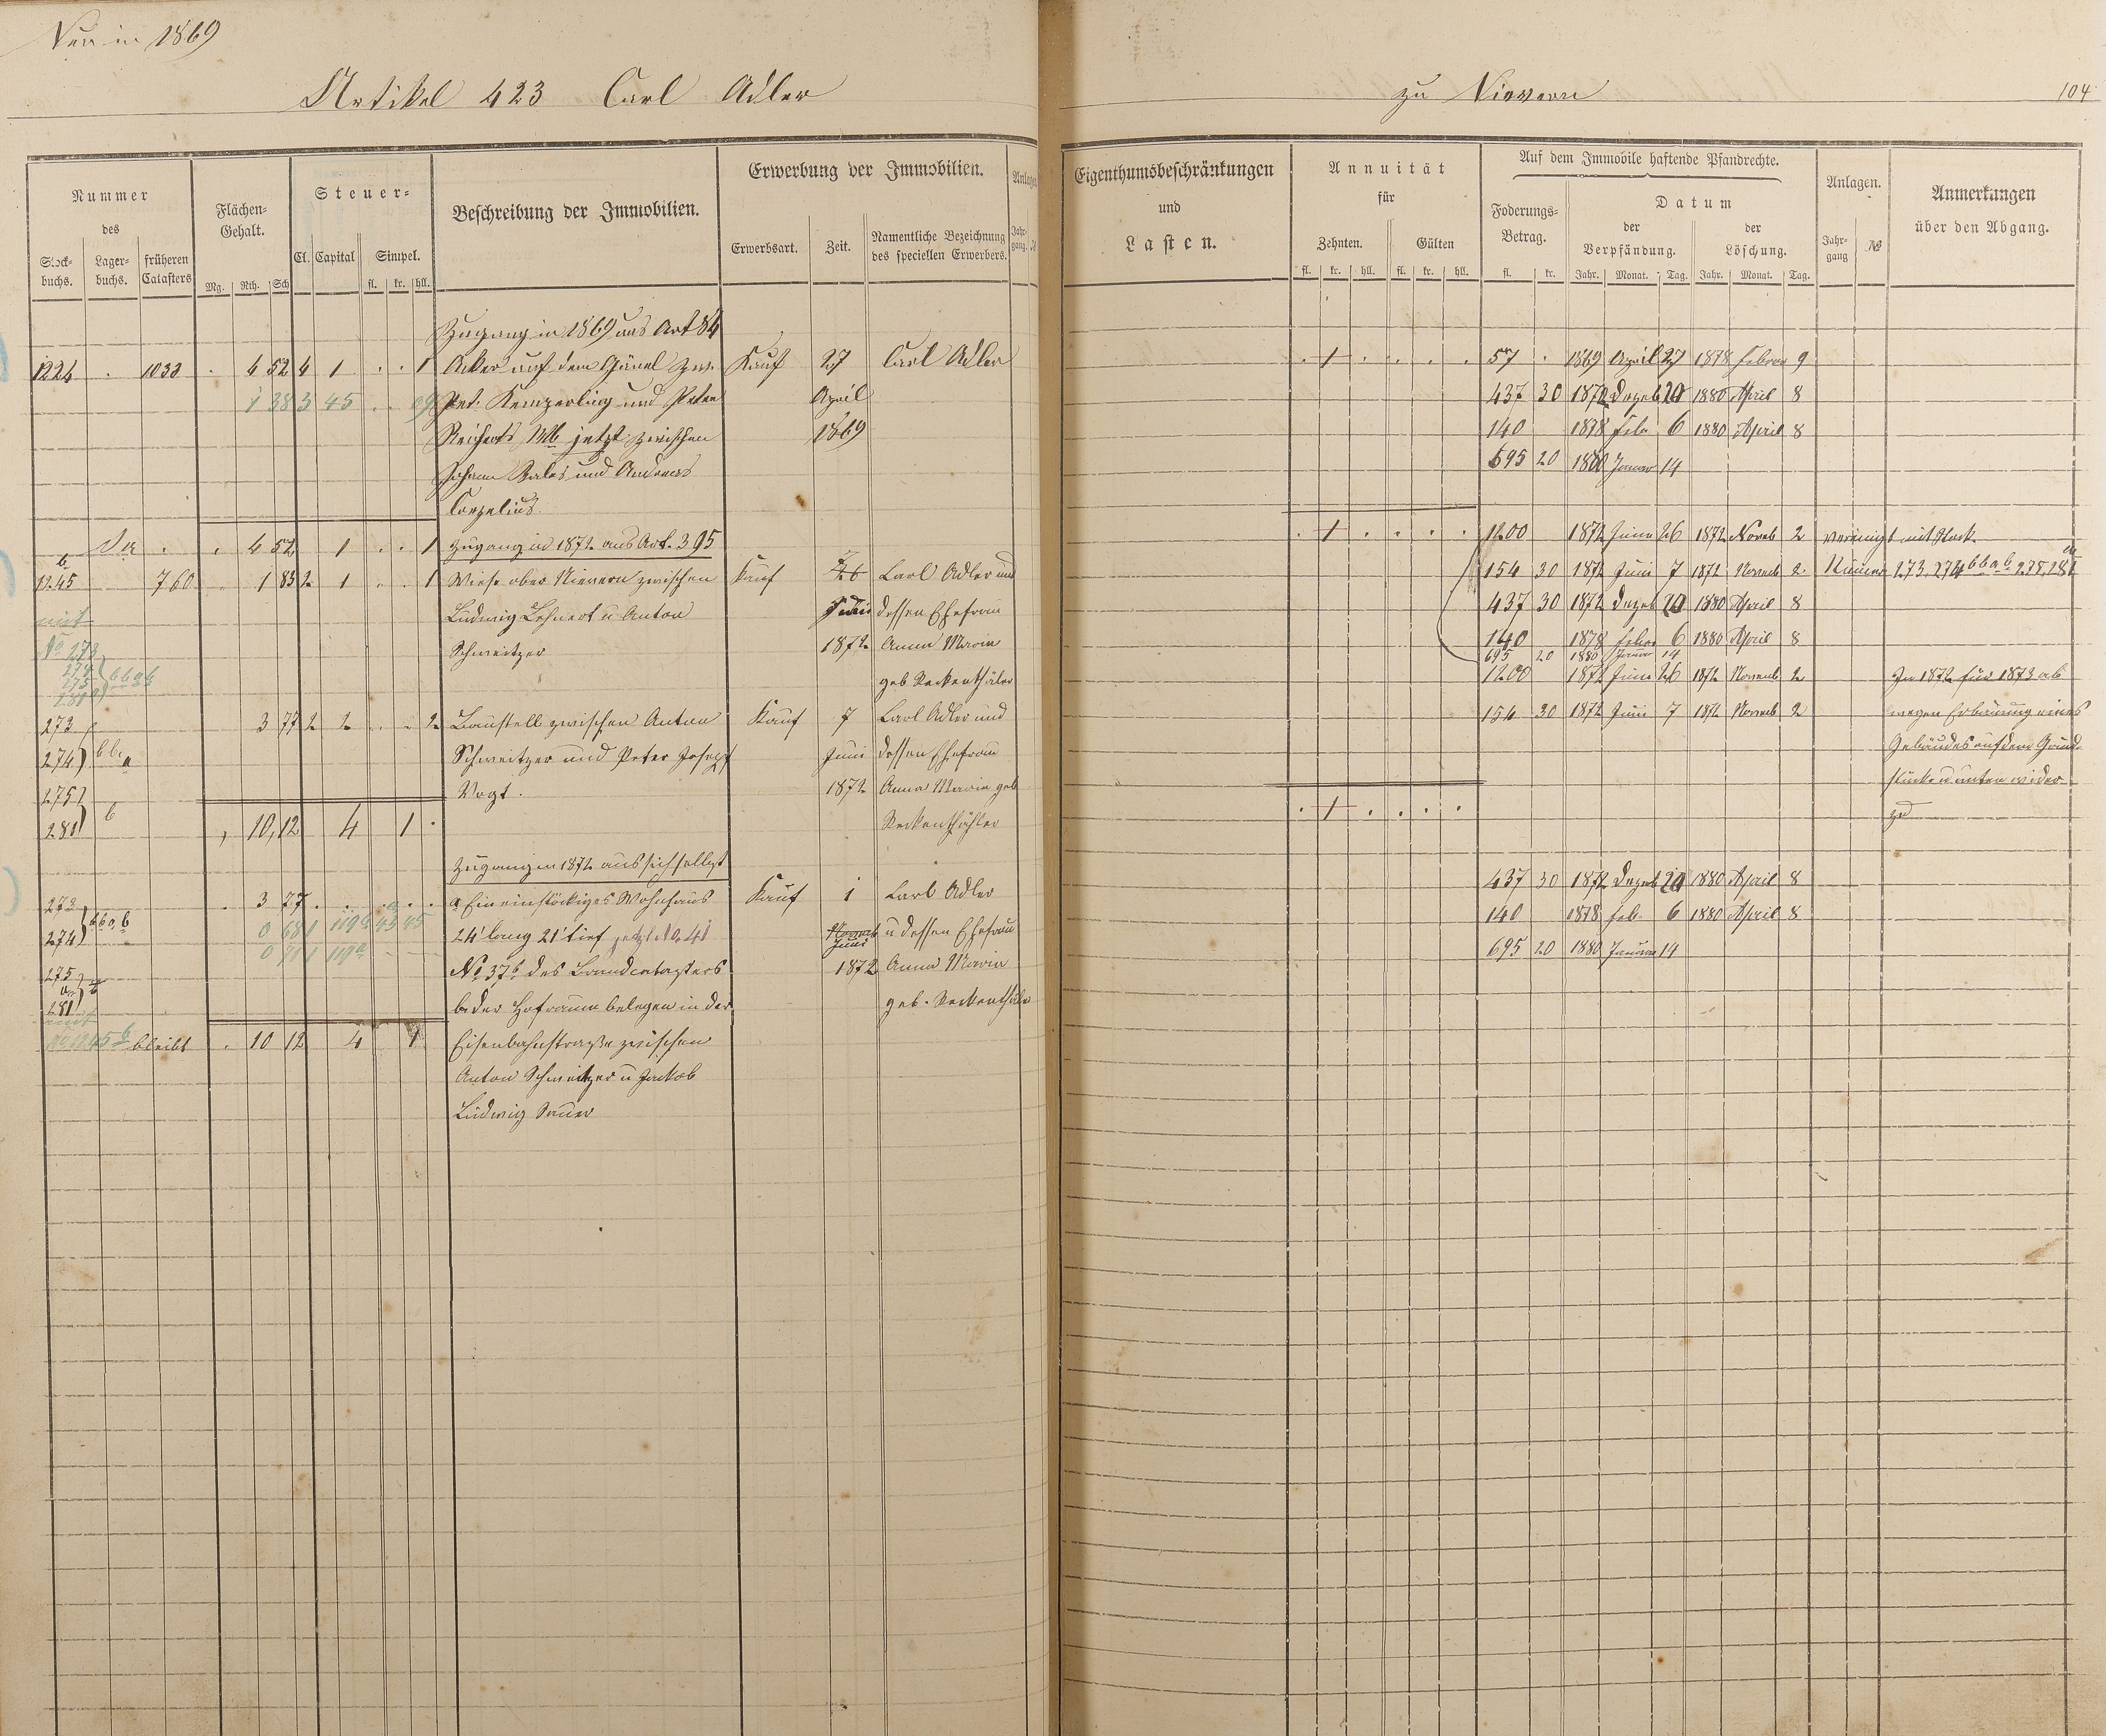 in 1869
Artikel 423 Carl Adler
zu Nievern
104
Nummer
des
Stock-
buchs.
Lager-
buchs.
früheren
Catasters
Flächen-
Gehalt.
Mg. Rth. Sch
Steuer-
Cl. Capital Simpel.
fl. kr. hll.
Beschreibung der Immobilien.
Erwerbung der Immobilien.
Erwerbsart. Zeit.
Namentliche Bezeichnung
des speciellen Erwerbers.
Anlagen
Jahr-
gang.
Eigenthumsbeschränkungen
und
Lasten.
Annuität
für
Zehnten. Gülten
fl. kr. hll. fl. kr. hll.
Auf dem Immobile haftende Pfandrechte.
Foderungs-
Betrag.
fl. kr.
Datum
der
Verpfändung.
der
Löschung.
Jahr. Monat. Tag. Jahr. Monat. Tag.
Anlagen.
Jahr-
gang
№
Anmerkungen
über den Abgang.
Zugang in 1869 aus Art 84
1224 . 1033 . 4 52 4 1 . . 1 Acker auf dem zw. Kauf 27 Carl Adler
1 38 3 45 . . Pet. Kemperling und Peter April
Reicherts Wb jetzt zwischen 1869
Johann und Andreas
Cornelius
. . 4 52 1 . . 1 Zugang in 1872 aus Art. 395
1245 b 760 . 1 83 2 1 . . 1 Wiese ober Nievern zwischen Kauf 26 Carl Adler und
mit Ludwig Lehnert u Anton Juni dessen Ehefrau
No 273 Schweitzer 1872 Anna Maria
274
275
281 geb Reckenthäler
273 3 77 2 2 . . 2 Baustelle zwischen Anton Kauf 7 Carl Adler und
274 Schweitzer und Peter Joseph Juni dessen Ehefrau
275 Vogt. 1872 Anna Maria geb
281 b , 10,12 4 1 . Reckenthähler
Zugang in 1872 aus sich selbst
273 . 3 77 . . . . a Ein einstöckiges Wohnhaus Kauf 1 Carl Adler
274 0 68 1 119 24' lang 21' tief jetzt No. 41 Novemb u dessen Ehefrau
Juni
0 71 1 119
275 No 37b des Brandcatasters 1872 Anna Maria
281 b der Hofraum belegen in der geb. Reckenthäler
mit
No 1245 b bleibt . 10 12 4 1 Eisenbahnstraße zwischen
Anton Schweitzer u Jackob
Ludwig Sauer
. 1 . . . . 57 . 1869 April 27 1878 Februar 9
437 30 1872 Dezeb 20 1880 April 8
140 1878 Feb 6 1880 April 8
695 20 1880 Januar 14
. 1 . . . . 1200 1872 Juni 26 1872 Noveb 2 vereinigt mit Stock
154 30 1872 Juni 7 1872 Novemb 2 Numer 273, 274 275, 281
437 30 1872 Dezeb 20 1880 April 8
140 1878 Febr 6 1880 April 8
695 20 1880 Januar 14
1200 1872 Juni 26 1872 Novemb 2 In 1872 für 1873 ab
154 30 1872 Juni 7 1872 Novemb 2 wegen Erbauung eines
Gebäudes auf dem Grund-
stücke u unten wider
. 1 . . . . zu
437 30 1872 Dezeb 20 1880 April 8
140 1878 Feb. 6 1880 April 8
695 20 1880 Januar 14